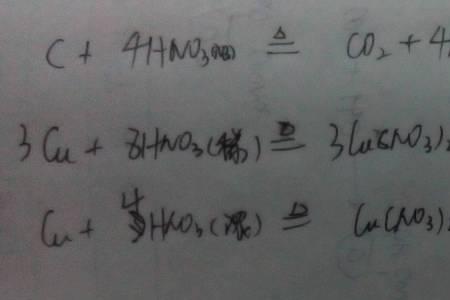 C + 4HNO₃(浓) ≜ CO₂ + 4
3Cu + 8HNO₃(稀) ≜ 3Cu(NO₃)₂
Cu + 4HNO₃(浓) ≜ Cu(NO₃)₂